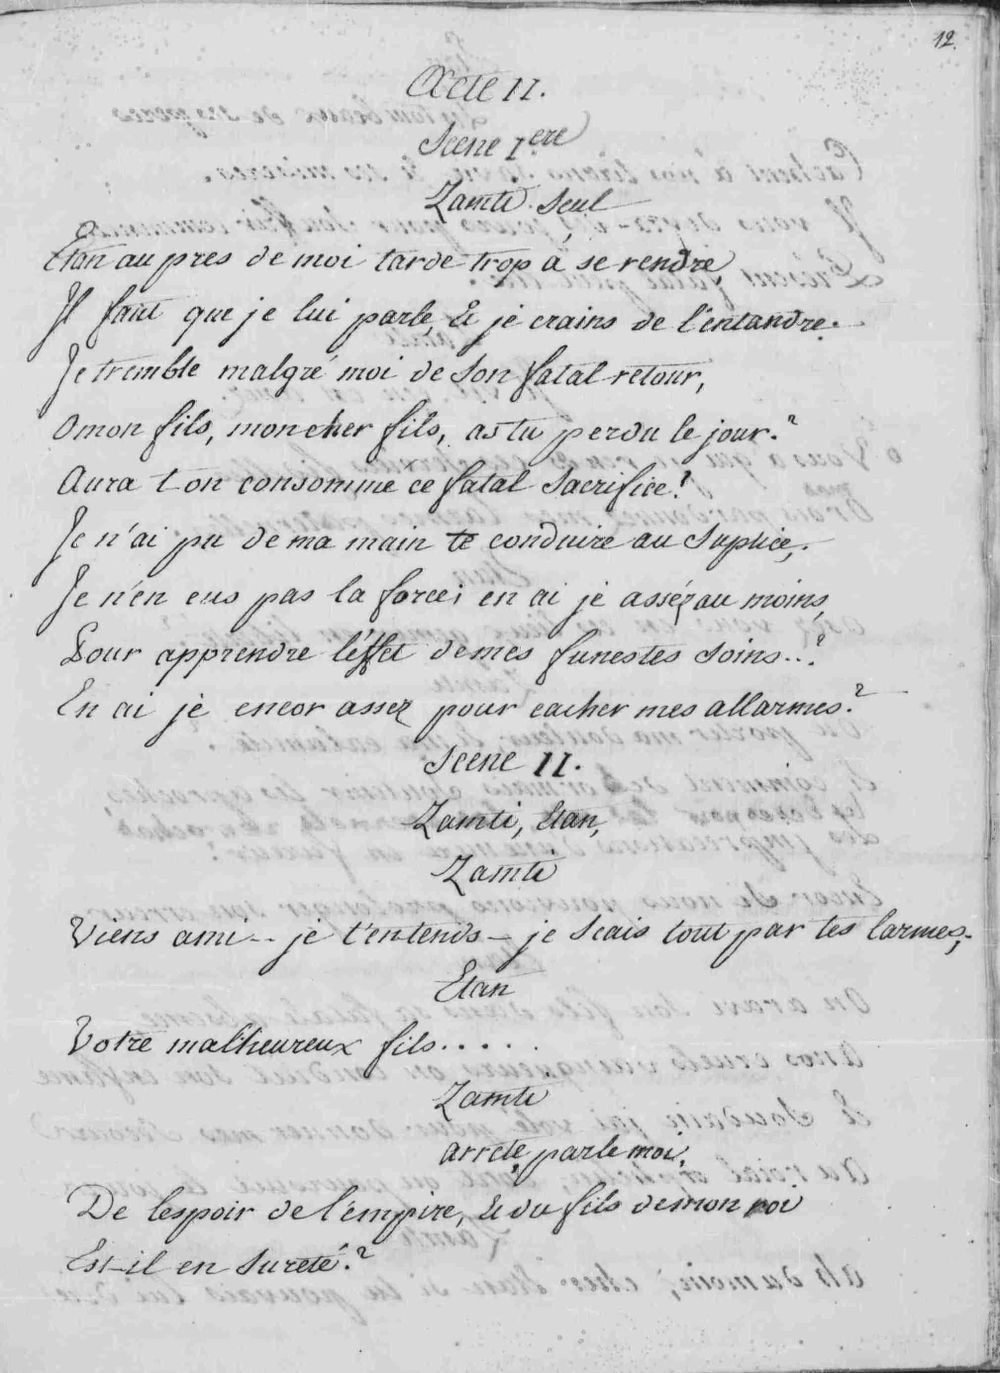 12.
Acte II.
Scene 1ere
Zamti seul
Etan au pres de moi tarde trop à se rendre
Il faut que je lui parle, & je crains de l'entandre.
Je tremble malgré moi de son fatal retour,
O mon fils, mon cher fils, as tu perdu le jour.?
Aura t on consomme ce fatal Sacrifice?
Je n'ai pu de ma main te conduire au suplice,.
Je n'en eus pas la force; en ai je asséz au moins,
Pour apprendre l'éffet de mes funestes soins...?
En ai je encor assez pour cacher mes allarmes.?
Scene II.
Zamti, Etan,
Zamti
Viens ami -- je t'entends - je scais tout par tes larmes,.
Etan
Votre malheureux fils.....
Zamti
arrete, parle moi,
De lespoir de l'émpire, & du fils de mon roi
Est-il en sureté.?